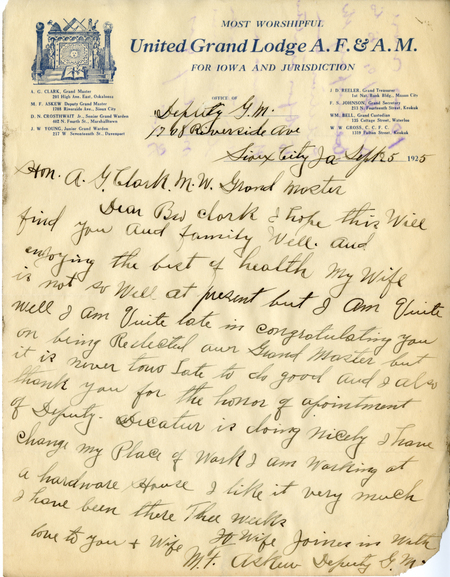 MOST WORSHIPFUL
United Grand Lodge A. F. & A. M.
FOR IOWA AND JURISDICTION
OFFICE OF
Grand Master
M. F. ASKEW Deputy Grand Master
1768 Riverside Ave., Sioux City
D. N. CROSTHWAIT Jr., Senior Grand Warden
J. W. YOUNG, Junior Grand Warden
217 W. Seventeenth St., Davenport
J. D. REELER, Grand Treasurer
1st Nat. Bank Bldg., Mason City
F. S. JOHNSON, Grand Secretary
Fourteenth Street, Keokuk
WM. BELL, Grand Custodian
126 Cottage Street, Waterloo
W. W. GROSS, C. C. F. C.
Street, Keokuk
Deputy G. M.
1768 Riverside Ave
Sioux City Ia Sept 5 1925
Hon. A. G. Clark M. W. Grand Master
Dear Bro Clark I hope this Will
find you and family Well. and
enjoying the best of health My Wife
is not so Well at present but I Am Quite
Well I Am Quite late in congratulating you
on being Reelected our Grand Master but
it is never too late to do good and I also
thank you for the honor of apointment
of Deputy. Decatur is doing Nicely I have
change my Place of Work I am Working at
a hardware House I like it very much
I have been there Three Weeks
Wife Joines in With
love to you & Wife
M. F. Askew Deputy G. M.